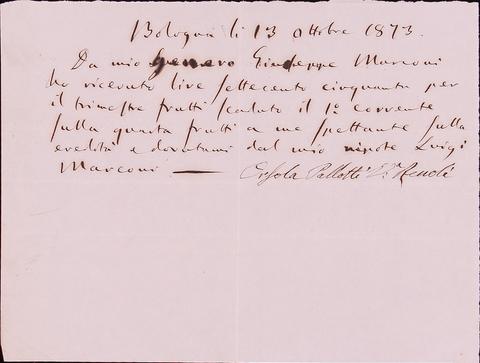 Bologna li 13 Ottobre 1873.
Da mio Genero Giuseppe Marconi
ho ricevuto lire settecento cinquanta per
il trimestre frutti scaduto il 1º corrente
sulla quarta frutti a me spettante sulla
eredità e dovutami dal mio nipote Luigi
Marconi — Orsola Pallotti